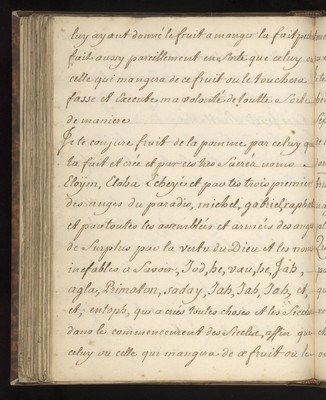 luy ayant donné le fruit a manger la fait
fait aussy pareillement en sorte que celuy ou
celle qui mangera de ce fruit ou le touchera
fasse et Execute ma volonté de toutte sorte
de maniere
Je te conjure fruit de la pomme par celuy qui
ta fait et créé et par ces tres Sacrea noms
Eloÿm, Eloba Echeyé et par les trois premier
des anges du paradis, michel, gabriel, raphael
et par toutes les assembleés et armées des ange
de Surplus par la vertu du Dieu et les noms
inefables a Savoir, Jod, he, vau, he, Jah,
agla, Primaton, saday, Jah, Jah, Jah, et,
et, entoph, qui a créé toutes choses et les Siecles
dans le commencement des Siecles, affin que
celuy ou celle qui mangera de ce fruit ou le